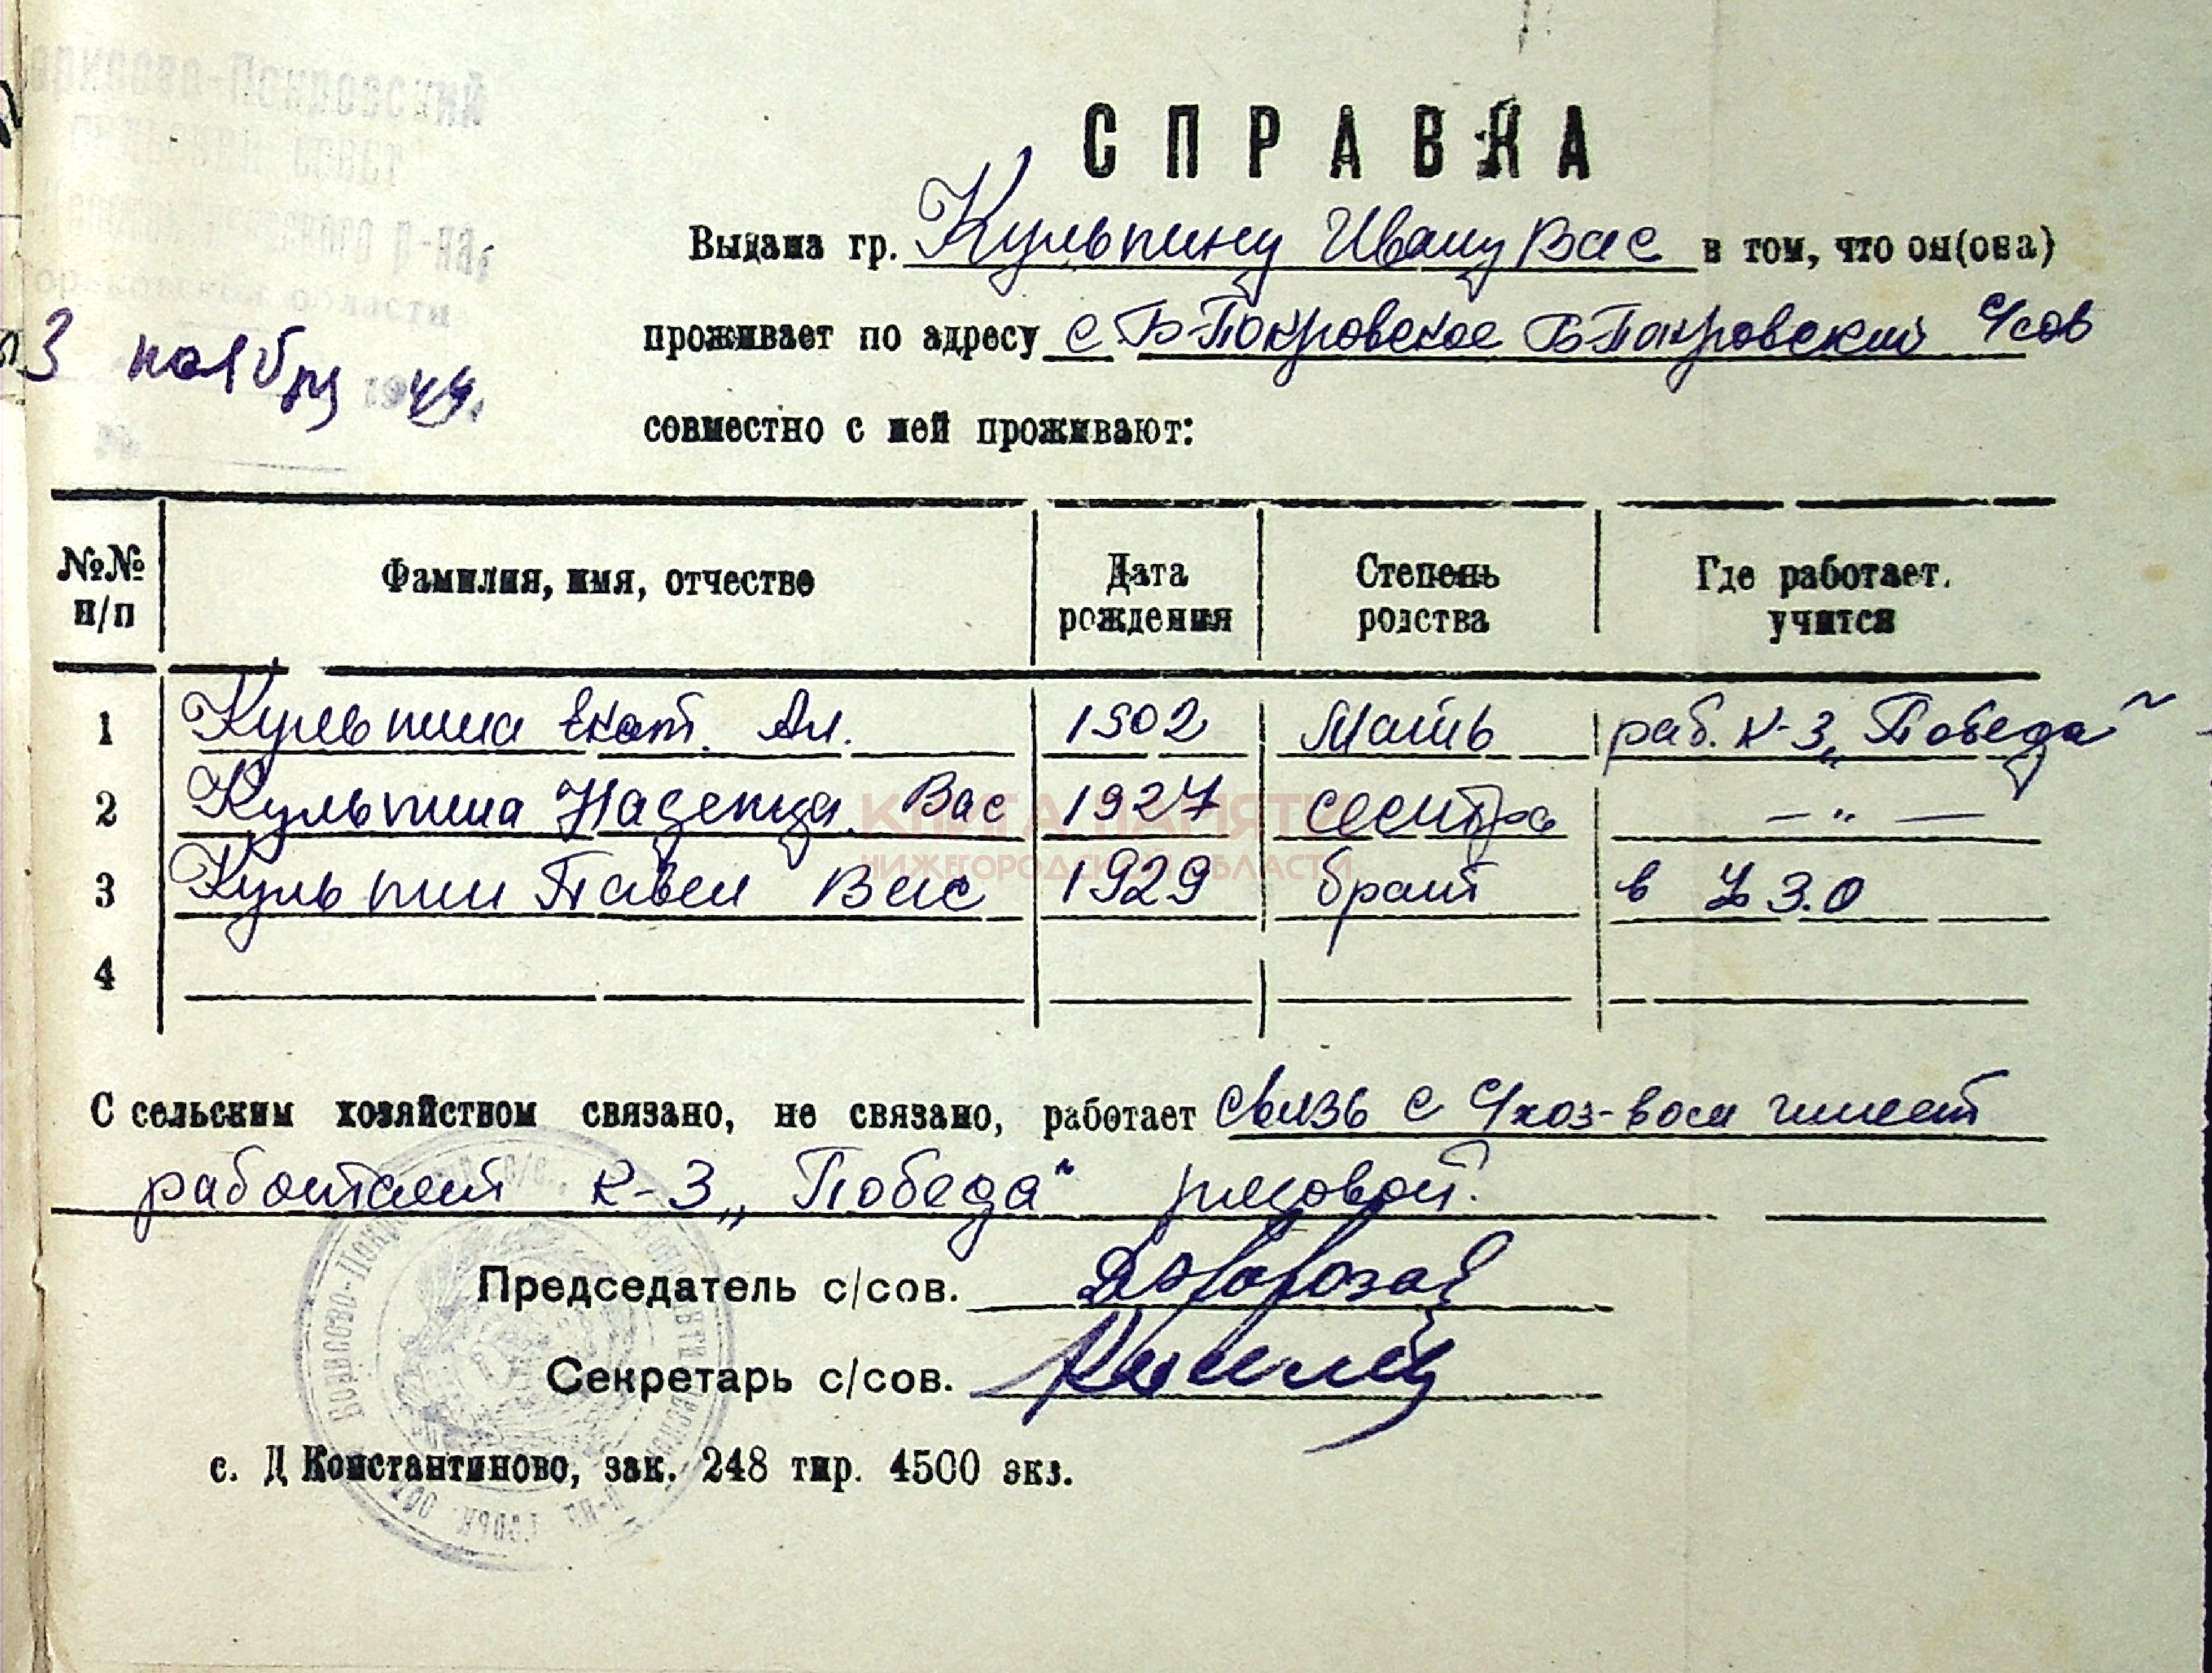 Борисово-Покровский
сельский совет
р-на,
Горьковской области
3 ноября 1944.
№
СПРАВКА
Выдана гр. Кульпину Ивану Вас в том, что он(она)
проживает по адресу с Б-Покровское Б Покровский с/сов
совместно с ней проживают:
№№ п/п Фамилия, имя, отчество Дата рождения Степень родства Где работает, учится
1 Кульпина Екат. Ал. 1902 Мать раб. к-з „Победа“
2 Кульпина Надежда Вас 1927 сестра — „ —
3 Кульпин Павел Вас 1929 брат в З.О
4
С сельским хозяйством связано, не связано, работает связь с с/хоз-вом имеет
работает к-з „Победа“ рядовой.
Председатель с/сов.
Секретарь с/сов.
с. Д Константиново, зак. 248 тир. 4500 экз.
КНИГА ПАМЯТИ
НИЖЕГОРОДСКОЙ ОБЛАСТИ